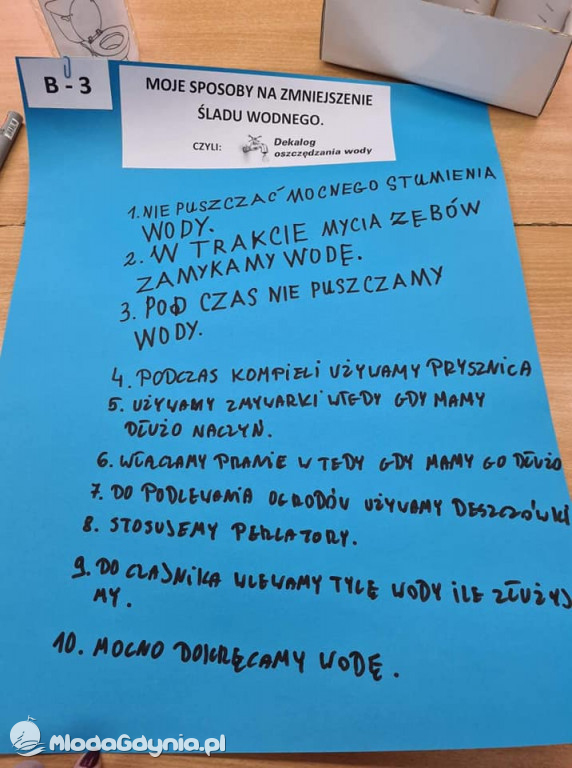 B - 3
MOJE SPOSOBY NA ZMNIEJSZENIE
ŚLADU WODNEGO.
CZYLI: Dekalog
oszczędzania wody
1. NIE PUSZCZAĆ MOCNEGO STUMIENIA
WODY.
2. W TRAKCIE MYCIA ZĘBÓW
ZAMYKAMY WODĘ.
3. POD CZAS NIE PUSZCZAMY
WODY.
4. PODCZAS KOMPIELI UŻYWAMY PRYSZNICA
5. UŻYWAMY ZMYWARKI WTEDY GDY MAMY
DŁUŻO NACZYŃ.
6. WŁĄCZAMY PRANIE W TEDY GDY MAMY GO DŁUŻO
7. DO PODLEWANIA OGRODÓW UŻYWAMY DESZCZÓWKI
8. STOSUJEMY PERLATORY.
9. DO CZAJNIKA WLEWAMY TYLE WODY ILE ZŁUŻYJ
MY.
10. MOCNO DOKRĘCAMY WODĘ.
MlodaGdynia.pl